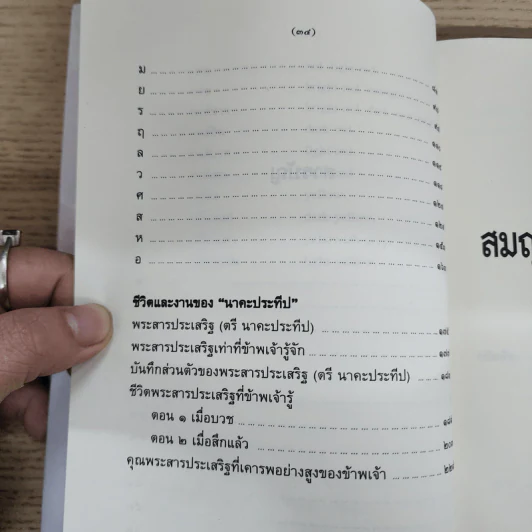 (๓๔)
ม
ย
ร
ฤ
ล
ว
ศ
ส
ห
อ
ชีวิตและงานของ “นาคะประทีป”
พระสารประเสริฐ (ตรี นาคะประทีป)
พระสารประเสริฐเท่าที่ข้าพเจ้ารู้จัก
บันทึกส่วนตัวของพระสารประเสริฐ (ตรี นาคะประทีป)
ชีวิตพระสารประเสริฐที่ข้าพเจ้ารู้
ตอน ๑ เมื่อบวช
ตอน ๒ เมื่อสึกแล้ว
คุณพระสารประเสริฐที่เคารพอย่างสูงของข้าพเจ้า